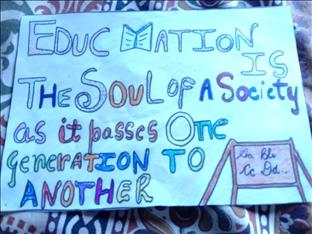 EDUCATION
IS
THE SOUL OF A Society
as it passes One
generATION TO
ANOTHER
Aa Bb
Cc Dd..